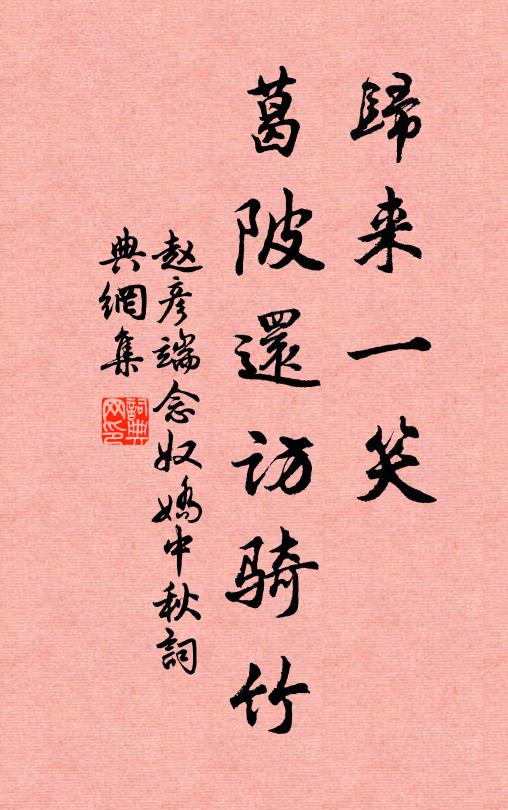 歸来一笑
葛陂還訪騎竹
赵彦端念奴嬌中秋詞
典網集
詞典网印